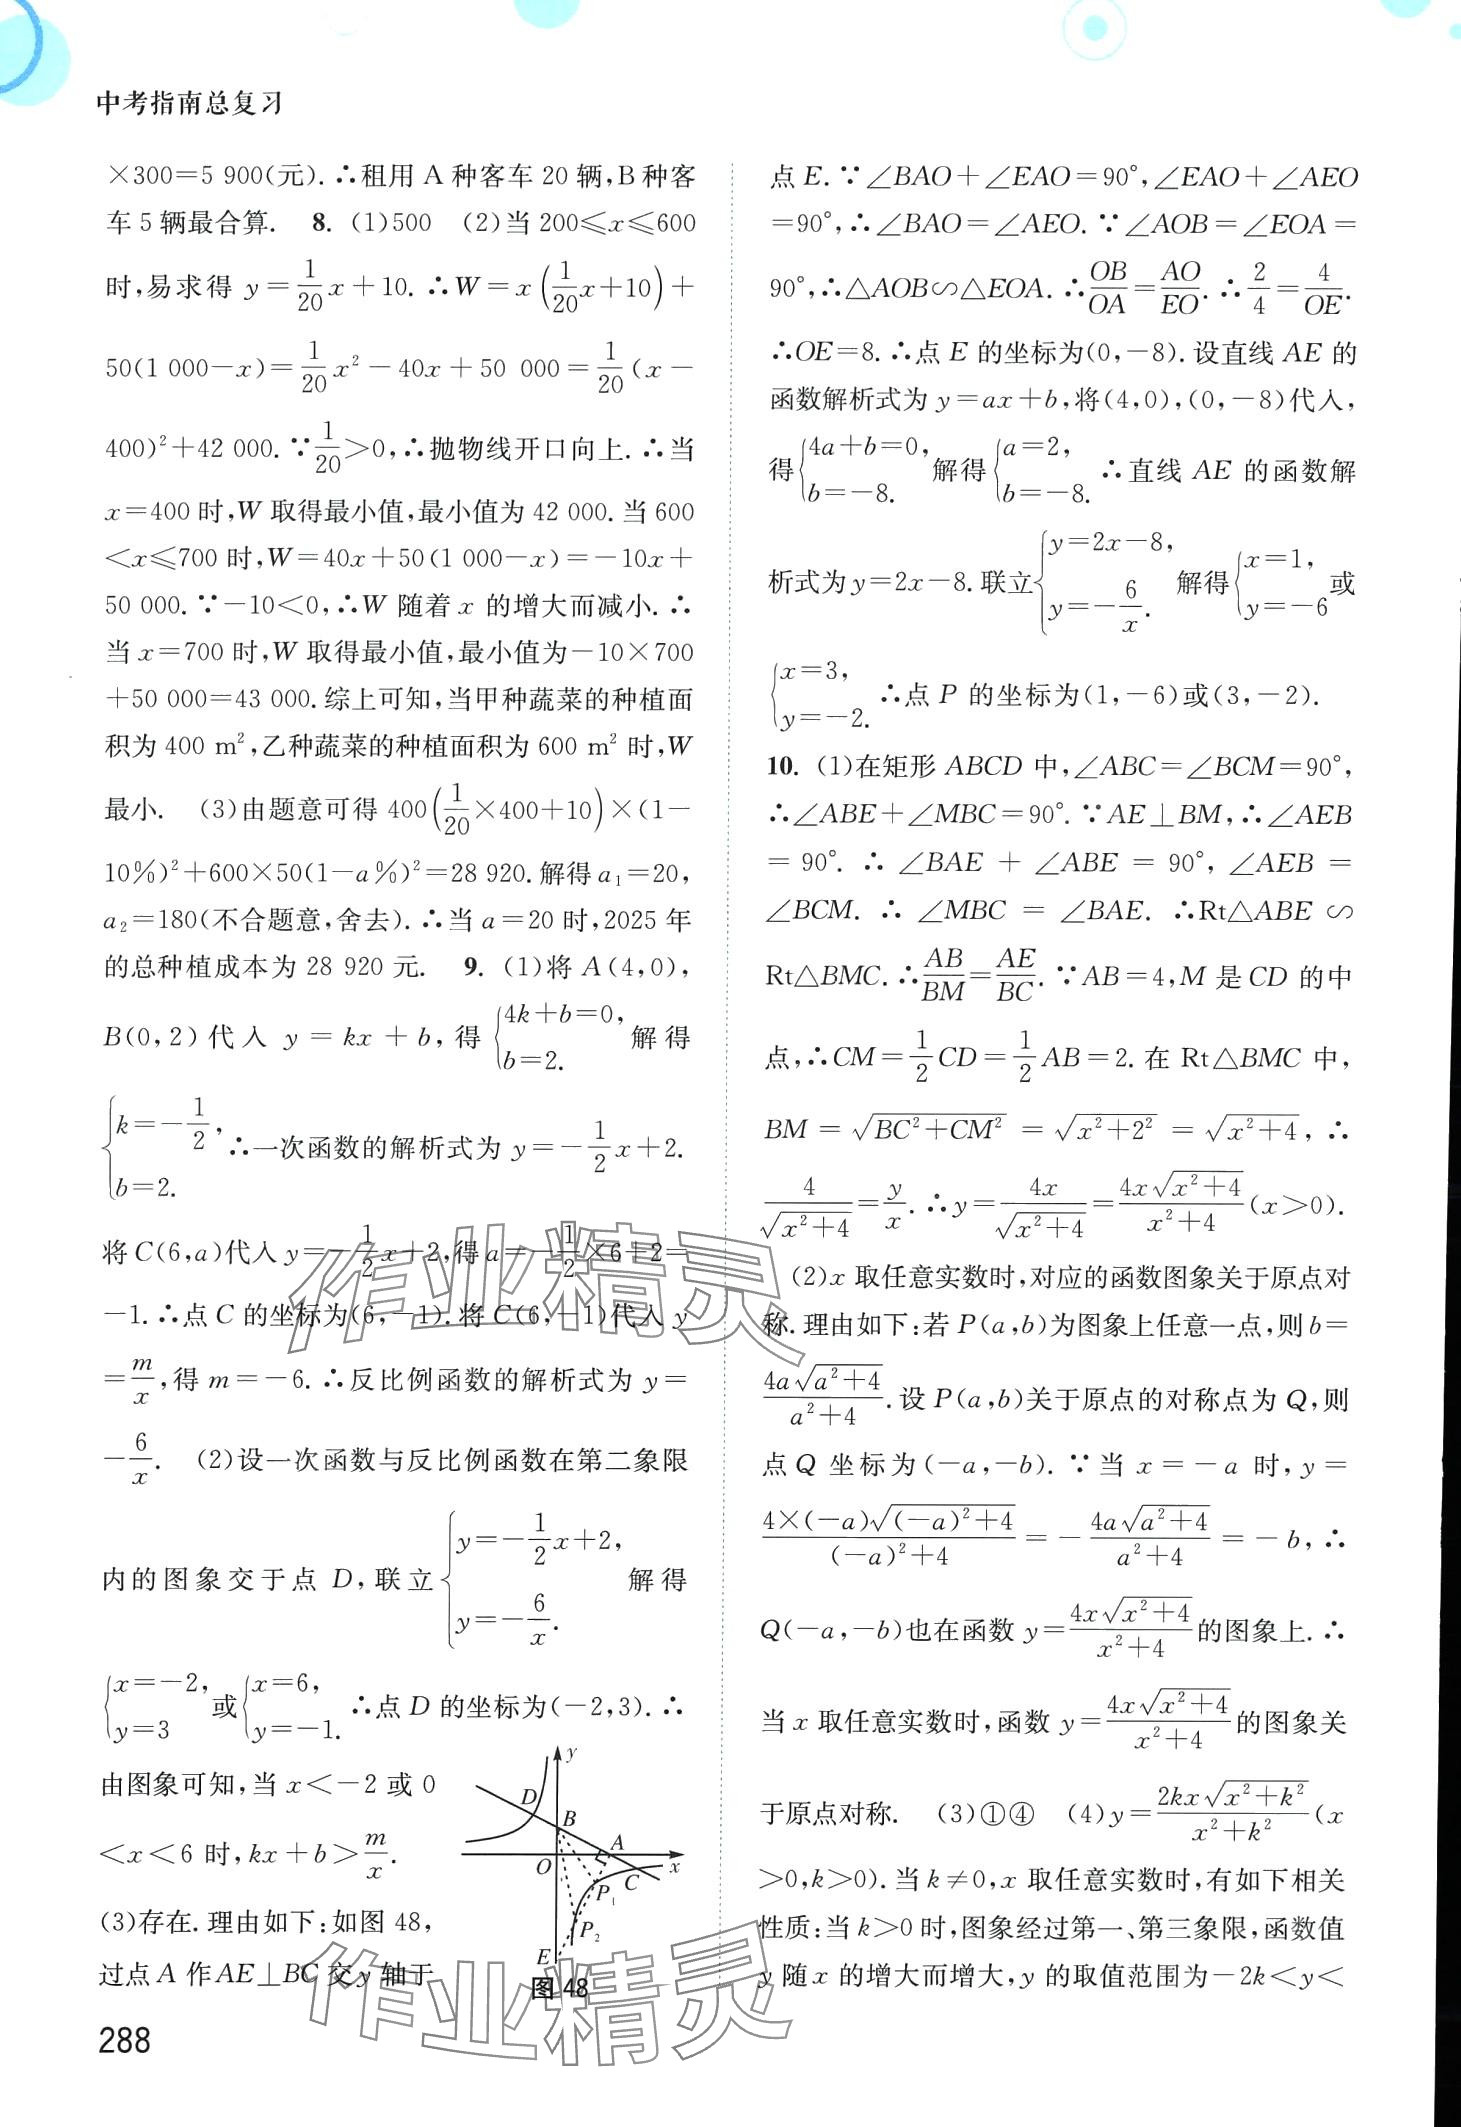 中考指南总复习
×300=5 900(元). ∴租用 A 种客车 20 辆,B 种客
车 5 辆最合算. 8. (1)500 (2)当 200≤x≤600
时,易求得 y=\frac{1}{20}x+10. ∴W=x(\frac{1}{20}x+10)+
50(1 000-x)=\frac{1}{20}x²-40x+50 000=\frac{1}{20}(x-
400)²+42 000. ∵\frac{1}{20}>0,∴抛物线开口向上. ∴当
x=400 时,W 取得最小值,最小值为 42 000. 当 600
<x≤700 时,W=40x+50(1 000-x)=-10x+
50 000. ∵-10<0,∴W 随着 x 的增大而减小. ∴
当 x=700 时,W 取得最小值,最小值为-10×700
+50 000=43 000. 综上可知,当甲种蔬菜的种植面
积为 400 m²,乙种蔬菜的种植面积为 600 m² 时,W
最小. (3)由题意可得 400(\frac{1}{20}×400+10)×(1-
10%)²+600×50(1-a%)²=28 920. 解得 a₁=20,
a₂=180(不合题意,舍去). ∴当 a=20 时,2025 年
的总种植成本为 28 920 元. 9. (1)将 A(4,0),
B(0,2)代入 y=kx+b,得{4k+b=0, b=2. 解得
{k=-\frac{1}{2}, b=2. ∴一次函数的解析式为 y=-\frac{1}{2}x+2.
将 C(6,a)代入 y=-\frac{1}{2}x+2,得 a=-\frac{1}{2}×6+2=
-1. ∴点 C 的坐标为(6,-1). 将 C(6,-1)代入 y
=\frac{m}{x},得 m=-6. ∴反比例函数的解析式为 y=
-\frac{6}{x}. (2)设一次函数与反比例函数在第二象限
内的图象交于点 D,联立{y=-\frac{1}{2}x+2, y=-\frac{6}{x}. 解得
{x=-2, y=3 或{x=6, y=-1. ∴点 D 的坐标为(-2,3). ∴
由图象可知,当 x<-2 或 0
<x<6 时,kx+b>\frac{m}{x}.
(3)存在. 理由如下:如图 48,
过点 A 作 AE⊥BC 交 y 轴于
y
D
B
A
O
x
C
P₁
P₂
E
图 48
点 E. ∵∠BAO+∠EAO=90°,∠EAO+∠AEO
=90°,∴∠BAO=∠AEO. ∵∠AOB=∠EOA=
90°,∴△AOB∽△EOA. ∴\frac{OB}{OA}=\frac{AO}{EO}. ∴\frac{2}{4}=\frac{4}{OE}.
∴OE=8. ∴点 E 的坐标为(0,-8). 设直线 AE 的
函数解析式为 y=ax+b,将(4,0),(0,-8)代入,
得{4a+b=0, b=-8. 解得{a=2, b=-8. ∴直线 AE 的函数解
析式为 y=2x-8. 联立{y=2x-8, y=-\frac{6}{x}. 解得{x=1, y=-6 或
{x=3, y=-2. ∴点 P 的坐标为(1,-6)或(3,-2).
10. (1)在矩形 ABCD 中,∠ABC=∠BCM=90°,
∴∠ABE+∠MBC=90°. ∵AE⊥BM,∴∠AEB
=90°. ∴∠BAE+∠ABE=90°,∠AEB=
∠BCM. ∴∠MBC=∠BAE. ∴Rt△ABE∽
Rt△BMC. ∴\frac{AB}{BM}=\frac{AE}{BC}. ∵AB=4,M 是 CD 的中
点,∴CM=\frac{1}{2}CD=\frac{1}{2}AB=2. 在 Rt△BMC 中,
BM=\sqrt{BC²+CM²}=\sqrt{x²+2²}=\sqrt{x²+4},∴
\frac{4}{\sqrt{x²+4}}=\frac{y}{x}. ∴y=\frac{4x}{\sqrt{x²+4}}=\frac{4x\sqrt{x²+4}}{x²+4}(x>0).
(2)x 取任意实数时,对应的函数图象关于原点对
称. 理由如下:若 P(a,b)为图象上任意一点,则 b=
\frac{4a\sqrt{a²+4}}{a²+4}. 设 P(a,b)关于原点的对称点为 Q,则
点 Q 坐标为(-a,-b). ∵当 x=-a 时,y=
\frac{4×(-a)\sqrt{(-a)²+4}}{(-a)²+4}=-\frac{4a\sqrt{a²+4}}{a²+4}=-b,∴
Q(-a,-b)也在函数 y=\frac{4x\sqrt{x²+4}}{x²+4}的图象上. ∴
当 x 取任意实数时,函数 y=\frac{4x\sqrt{x²+4}}{x²+4}的图象关
于原点对称. (3)①④ (4)y=\frac{2kx\sqrt{x²+k²}}{x²+k²}(x
>0,k>0). 当 k≠0,x 取任意实数时,有如下相关
性质:当 k>0 时,图象经过第一、第三象限,函数值
y 随 x 的增大而增大,y 的取值范围为-2k<y<
288
作业精灵
作业精灵